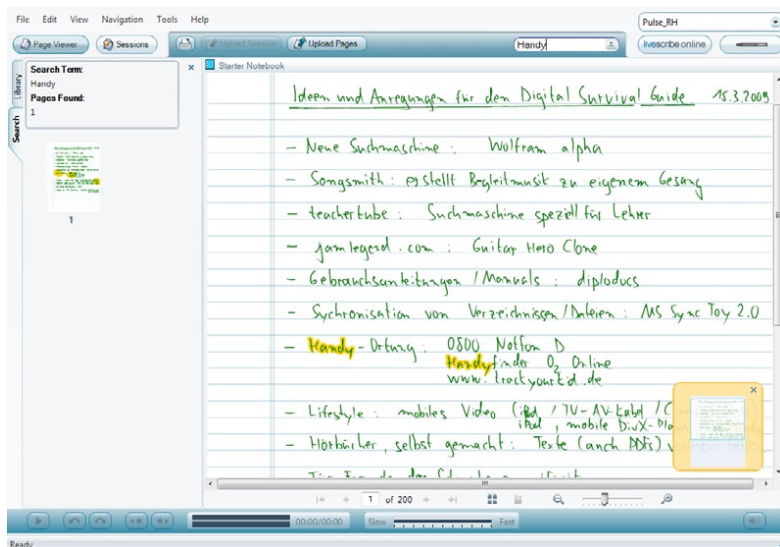 File Edit View Navigation Tools Help
Pulse_RH
Page Viewer Sessions Upload Session Upload Pages Handy livescribe online
Library
Search
Search Term:
Handy
Pages Found:
1
1
Starter Notebook
Ideen und Anregungen für den Digital Survival Guide 15.3.2009
- Neue Suchmaschine: Wolfram alpha
- Songsmith: erstellt Begleitmusik zu eigenem Gesang
- teachertube: Suchmaschine speziell für Lehrer
- jamlegend.com: Guitar Hero Clone
- Gebrauchsanleitungen / Manuals: diplodocs
- Sychronisation von Verzeichnissen / Dateien: MS Sync Toy 2.0
- Handy-Ortung: 0800 Notfon D
Handyfinder O2 Online
www.trackyourkid.de
- Lifestyle: mobiles Video (iPod / TV-AV-Kabel /
iPod, mobile DivX-
- Hörbücher, selbst gemacht: Texte (auch PDFs)
1 of 200
00:00/00:00 Slow Fast
Ready